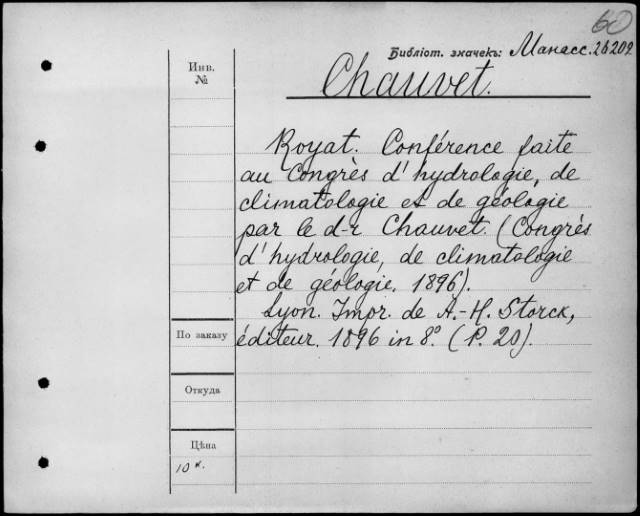 60
Библіот. значекъ: Манасс. 26202
Инв.
№
Chauvet.
Royat. Conférence faite
au Congrès d'hydrologie, de
climatologie et de géologie
par le d-r Chauvet. (Congrès
d'hydrologie, de climatologie
et de géologie. 1896).
Lyon. Impr. de A.-H. Storck,
éditeur. 1896 in 8°. (P. 20).
По заказу
Откуда
Цѣна
10 к.